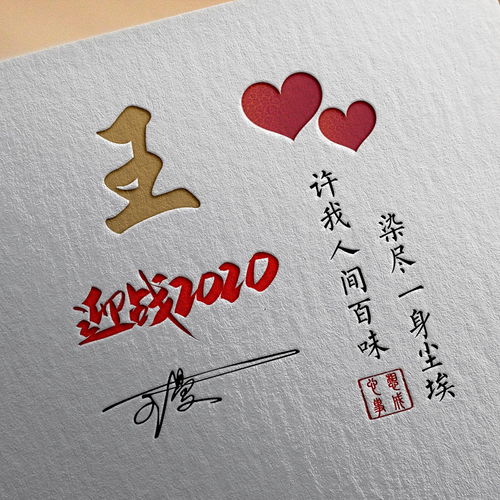 王
迎战2020
染尽一身尘埃
许我人间百味
心想事成